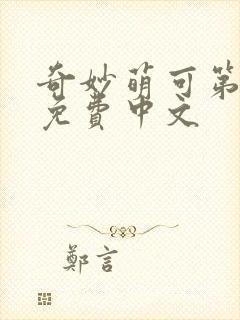 奇妙萌可第
免費中文
鄭言